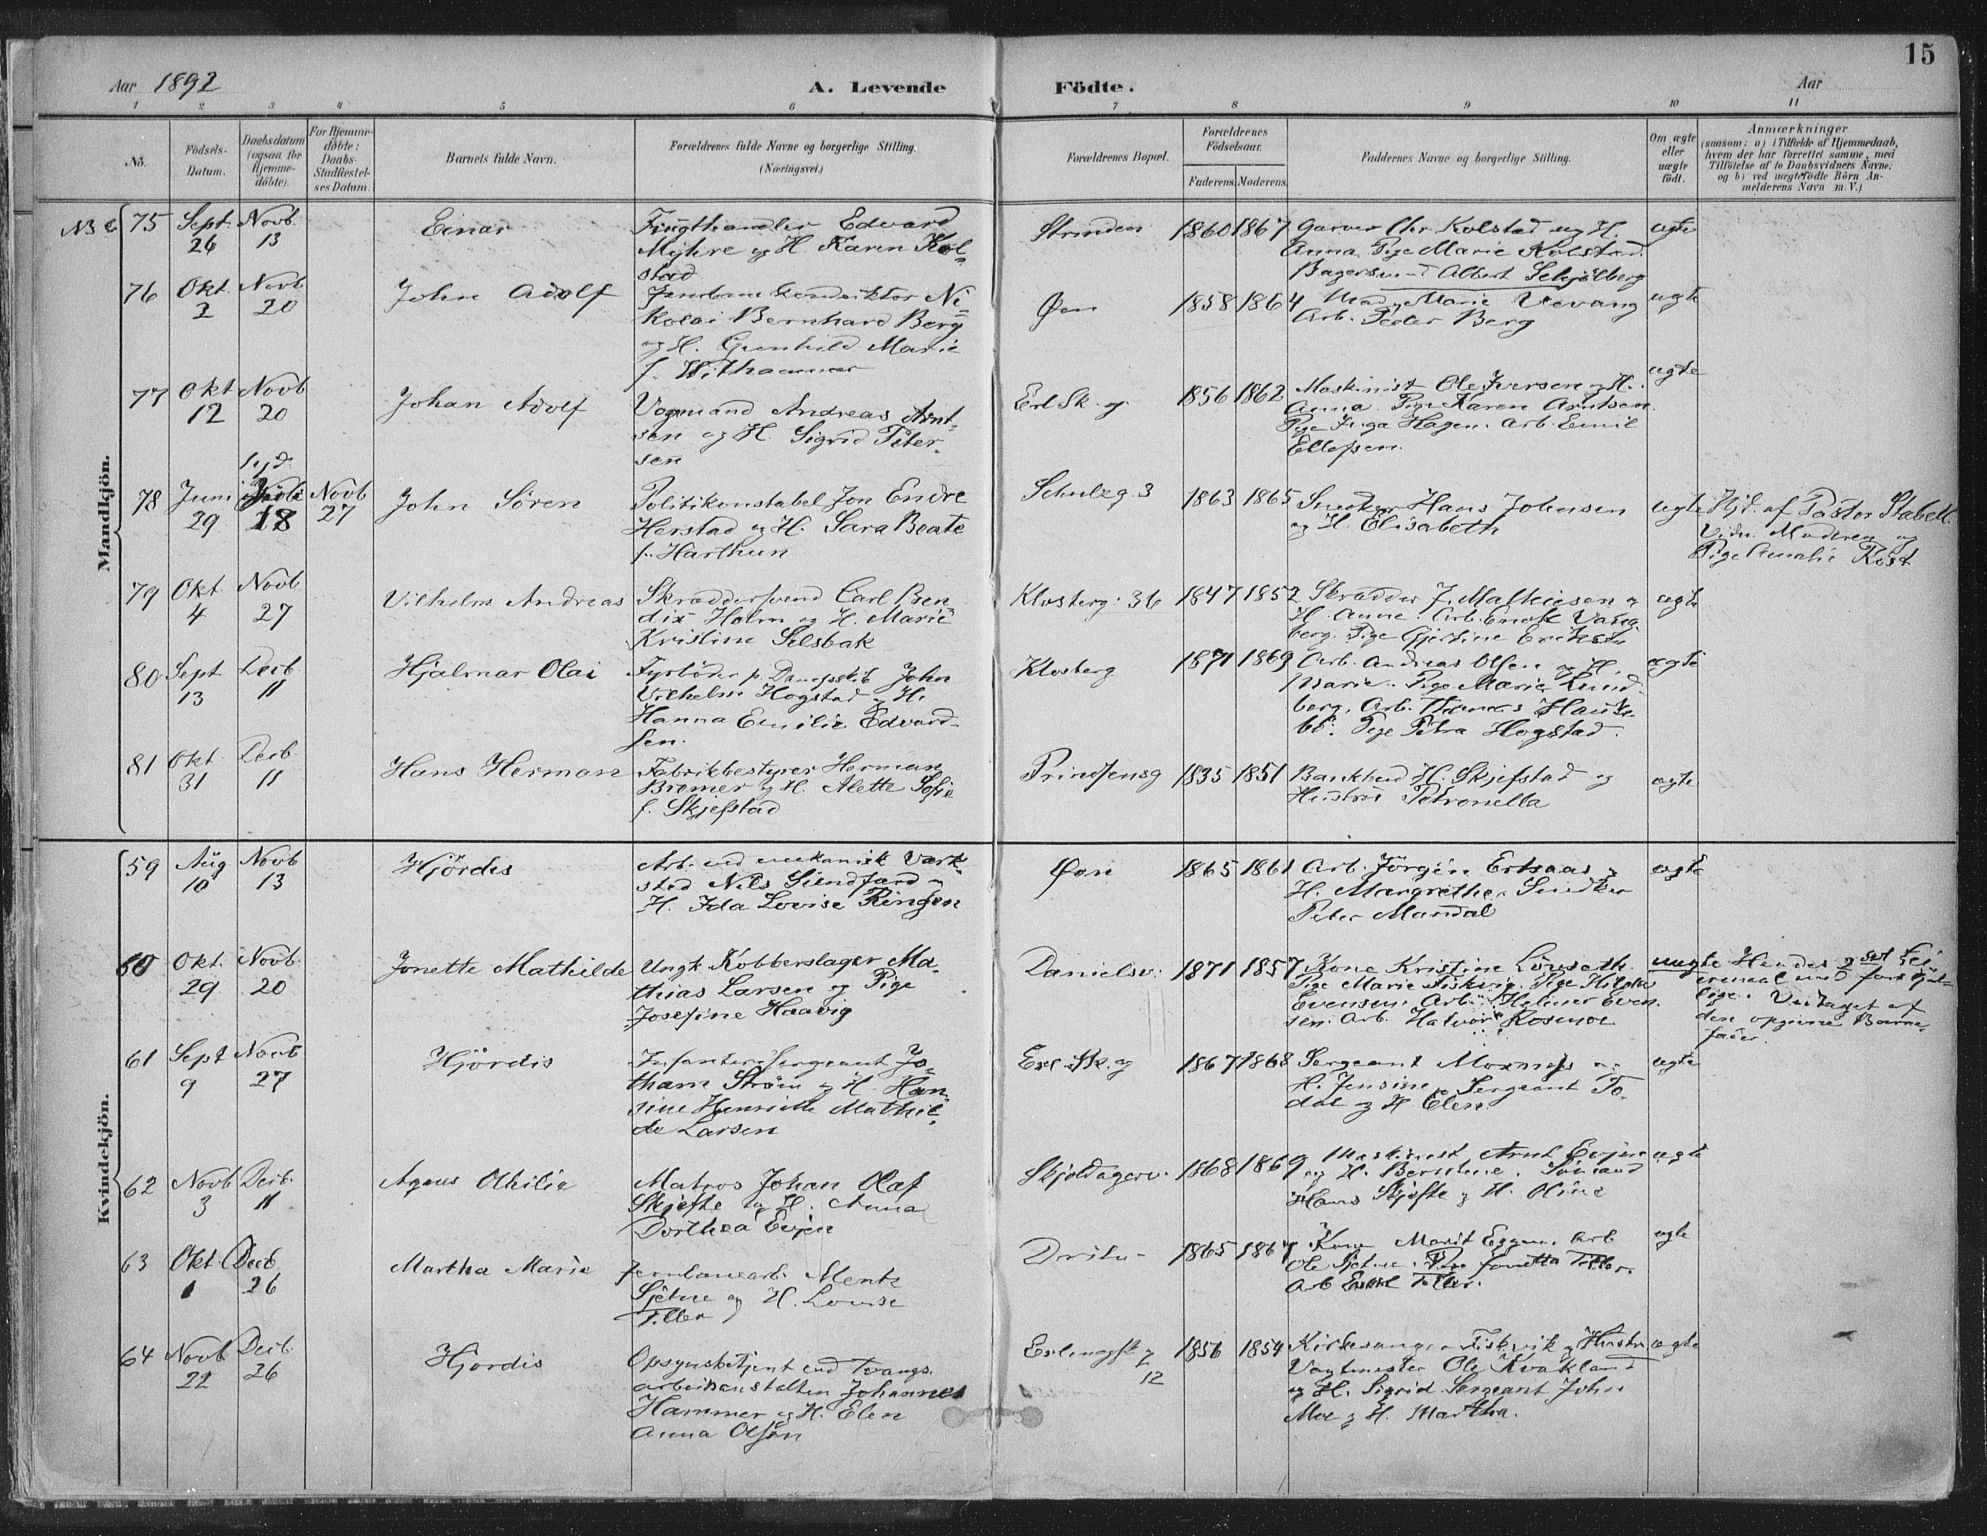 15
Aar 1892 A. Levende Födte. Aar
1 2 3 4 5 6 7 8 9 10 11
No.
Födsels-Datum.
Daabsdatum (ogsaa for Hjemme-döbte).
For Hjemme-döbte: Daabs-Stadfæstel-ses Datum.
Barnets fulde Navn.
Forældrenes fulde Navne og borgerlige Stilling. (Næringsvei.)
Forældrenes Bopæl.
Forældrenes Födselsaar.
Faderens. Moderens.
Faddernes Navne og borgerlige Stilling.
Om ægte eller uægte födt.
Anmærkninger
(saasom: a) i Tilfælde af Hjemmedaab,
hvem der har forrettet samme, med
Tilföielse af to Daabsvidners Navne;
og b) ved uægtefödte Börn An-
melderens Navn m. V.)
Mandkjön.
75 Sept. 26 Novb. 13 Einar
Edvard
Myhre og H. Karen Kol-
stad
Strinden 1860 1867
Garver Chr. Kolstad og H.
Anna. Pige Marie Kolstad.
Bagersvend Albert Schjölberg
ægte
76 Okt. 2 Novb. 20 John Adolf
Jernbanekonduktör Ni-
kolai Bernhard Berg
og H. Gunhild Marie
f. Withammer
Øen 1858 1864
Marie Vevang
Arb. Peder Berg
ægte
77 Okt 12 Novb 20 Johan Adolf
Vognmand Andreas Arnt-
sen og H. Sigrid Peter-
sen
Erl. Sk. g. 1856 1862
Maskinist Ole Iversen og H.
Anna. Pige Karen Arntsen.
Pige Inga Hagen. Arb. Emil
Ellefsen.
ægte
78 Juni 29 18 Novb 27 John Sören
Politikonstabel Jon Endre
Herstad og H. Sara Beate
f. Harthun
Schulzg. 3 1863 1865
Snedker Hans Johnsen
og H. Elisabeth
ægte
Hjd. af Pastor Stabell.
Vidn. Moderen og
Pige Amalie Röst
79 Okt 4 Novb. 27 Vilhelm Andreas
Skräddersvend Carl Ben
dix Holm og H. Marie
Kristine Selsbak
Klosterg. 36 1847 1852
Skrädder J. Mathiesen og
H. Anne. Arb. Enok Vang
berg. Pige Gjertine Eriksen
ægte
80 Sept 13 Decb. 11 Hjalmar Olai
Fyrböder p. Dampskib John
Vilhelm Hogstad og H.
Hanna Emilie Edvard-
sen.
Klosterg 1871 1869
Arb. Andreas Olsen og H.
Marie. Pige Marie Lund-
berg. Arb. Thomas
Pige Petra Hogstad.
ægte
81 Okt. 31 Decb. 11 Hans Herman
Fabrikbestyrer Herman
Bromer og H. Alette Sofie
f. Skjefstad
Prindsensg 1835 1851
H. Skjefstad og
Hustru Petronella
ægte
Kvindekjön.
59 Aug 10 Novb 13 Hjördis
Arb. ved mekanisk Værk-
sted Nils og
H. Ida Lovise Ringen
Øen 1865 1861
Arb. Jörgen Ertsaas og
H. Margrethe. Snedker
Peter Mandal
ægte
60 Okt. 29 Novb. 20 Jonette Mathilde
Ungk. Kobberslager Ma-
thias Larsen og Pige
Josefine Haavig
Danielsv. 1871 1857
Kone Kristine Lönseth.
Pige Marie Fiskvig. Pige Hilda
Evensen. Arb. Helmer Even
sen. Arb. Halvor Rosmoe
uægte
Hendes 2det Lei
ermaal med forskjel-
lige. Vedtaget af
den opgivne Barne-
fader.
61 Sept 9 Novb 27 Hjördis
Infanterisergeant Jo-
tham Ström og H. Han-
sine Henriette Mathil-
de Larsen
Erl. Sk. g 1867 1868
Sergeant Moxness og
H. Jensine. Sergeant To-
dal og H. Elen.
ægte
62 Novb 3 Decb. 11 Agnes Othilie
Matros Johan Olaf
Skjefte og H. Anna
Dorthea Evjen
Skjoldagerv. 1868 1869
Maskinist Arnt Evjen
og H. Berntine. Sömand
Hans Skjefte og H. Oline
ægte
63 Okt. 1 Decb 26 Martha Marie
Jernbanearb. Mentz
Sjetne og H. Lovise
Tiller
1865 1867
Kone Marit Eggen. Arb
Ole Sjetne. Pige Jonetta Tiller.
Arb Tiller.
ægte
64 Novb 22 Decb. 26 Hjördis
Opsynsbetjent ved Tvangs-
arbeidsanstalten Johannes
Hammer og H. Elen
Anna Olsen
Erlingsk g 12 1856 1854
Kirkesanger Fiskvik og Hustru
Vagtmester Ole Kvakland
og H. Sigrid. Sergeant John
Moe og H. Martha.
ægte